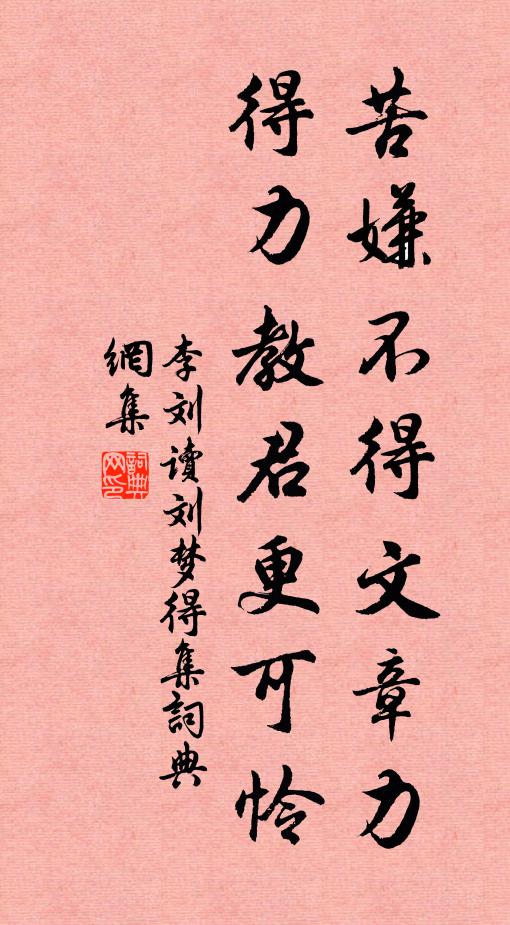 苦嫌不得文章力
得力教君更可怜
李刘读刘梦得集詞典
網集
詞典网印